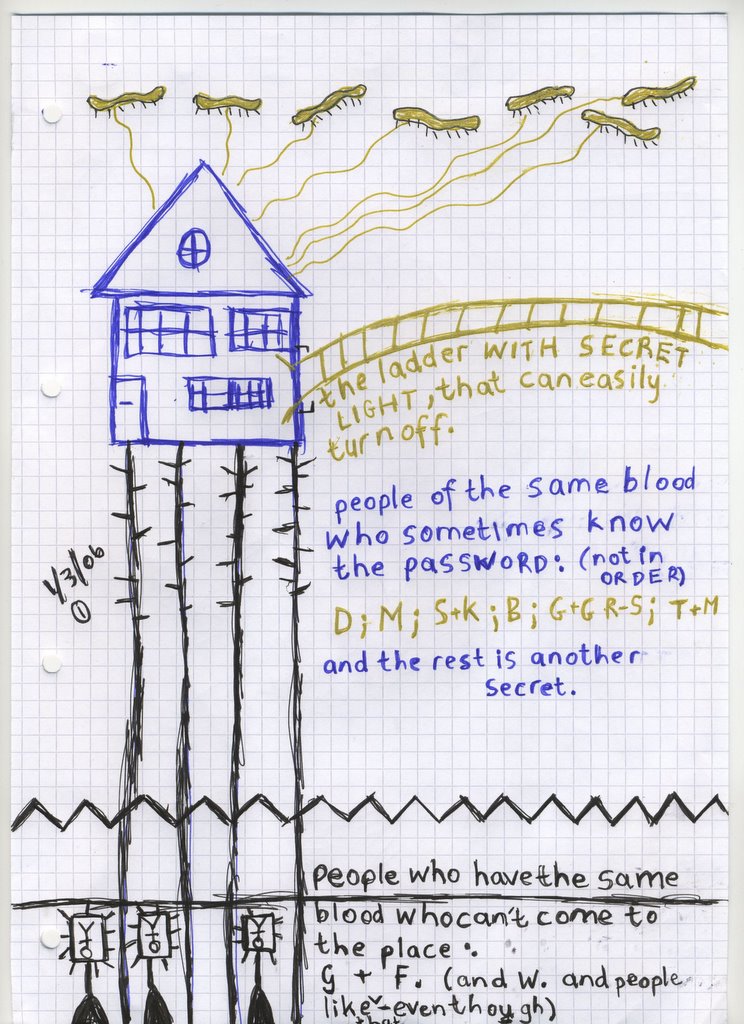 the ladder WITH SECRET
LIGHT, that can easily
turn off.
people of the same blood
who sometimes know
the PASSWORD: (not in
ORDER)
1/3/06
①
D; M; S+K; B; G+G R-S; T+M
and the rest is another
secret.
people who have the same
blood who can't come to
the place:
G + F. (and W. and people
like that - even though)